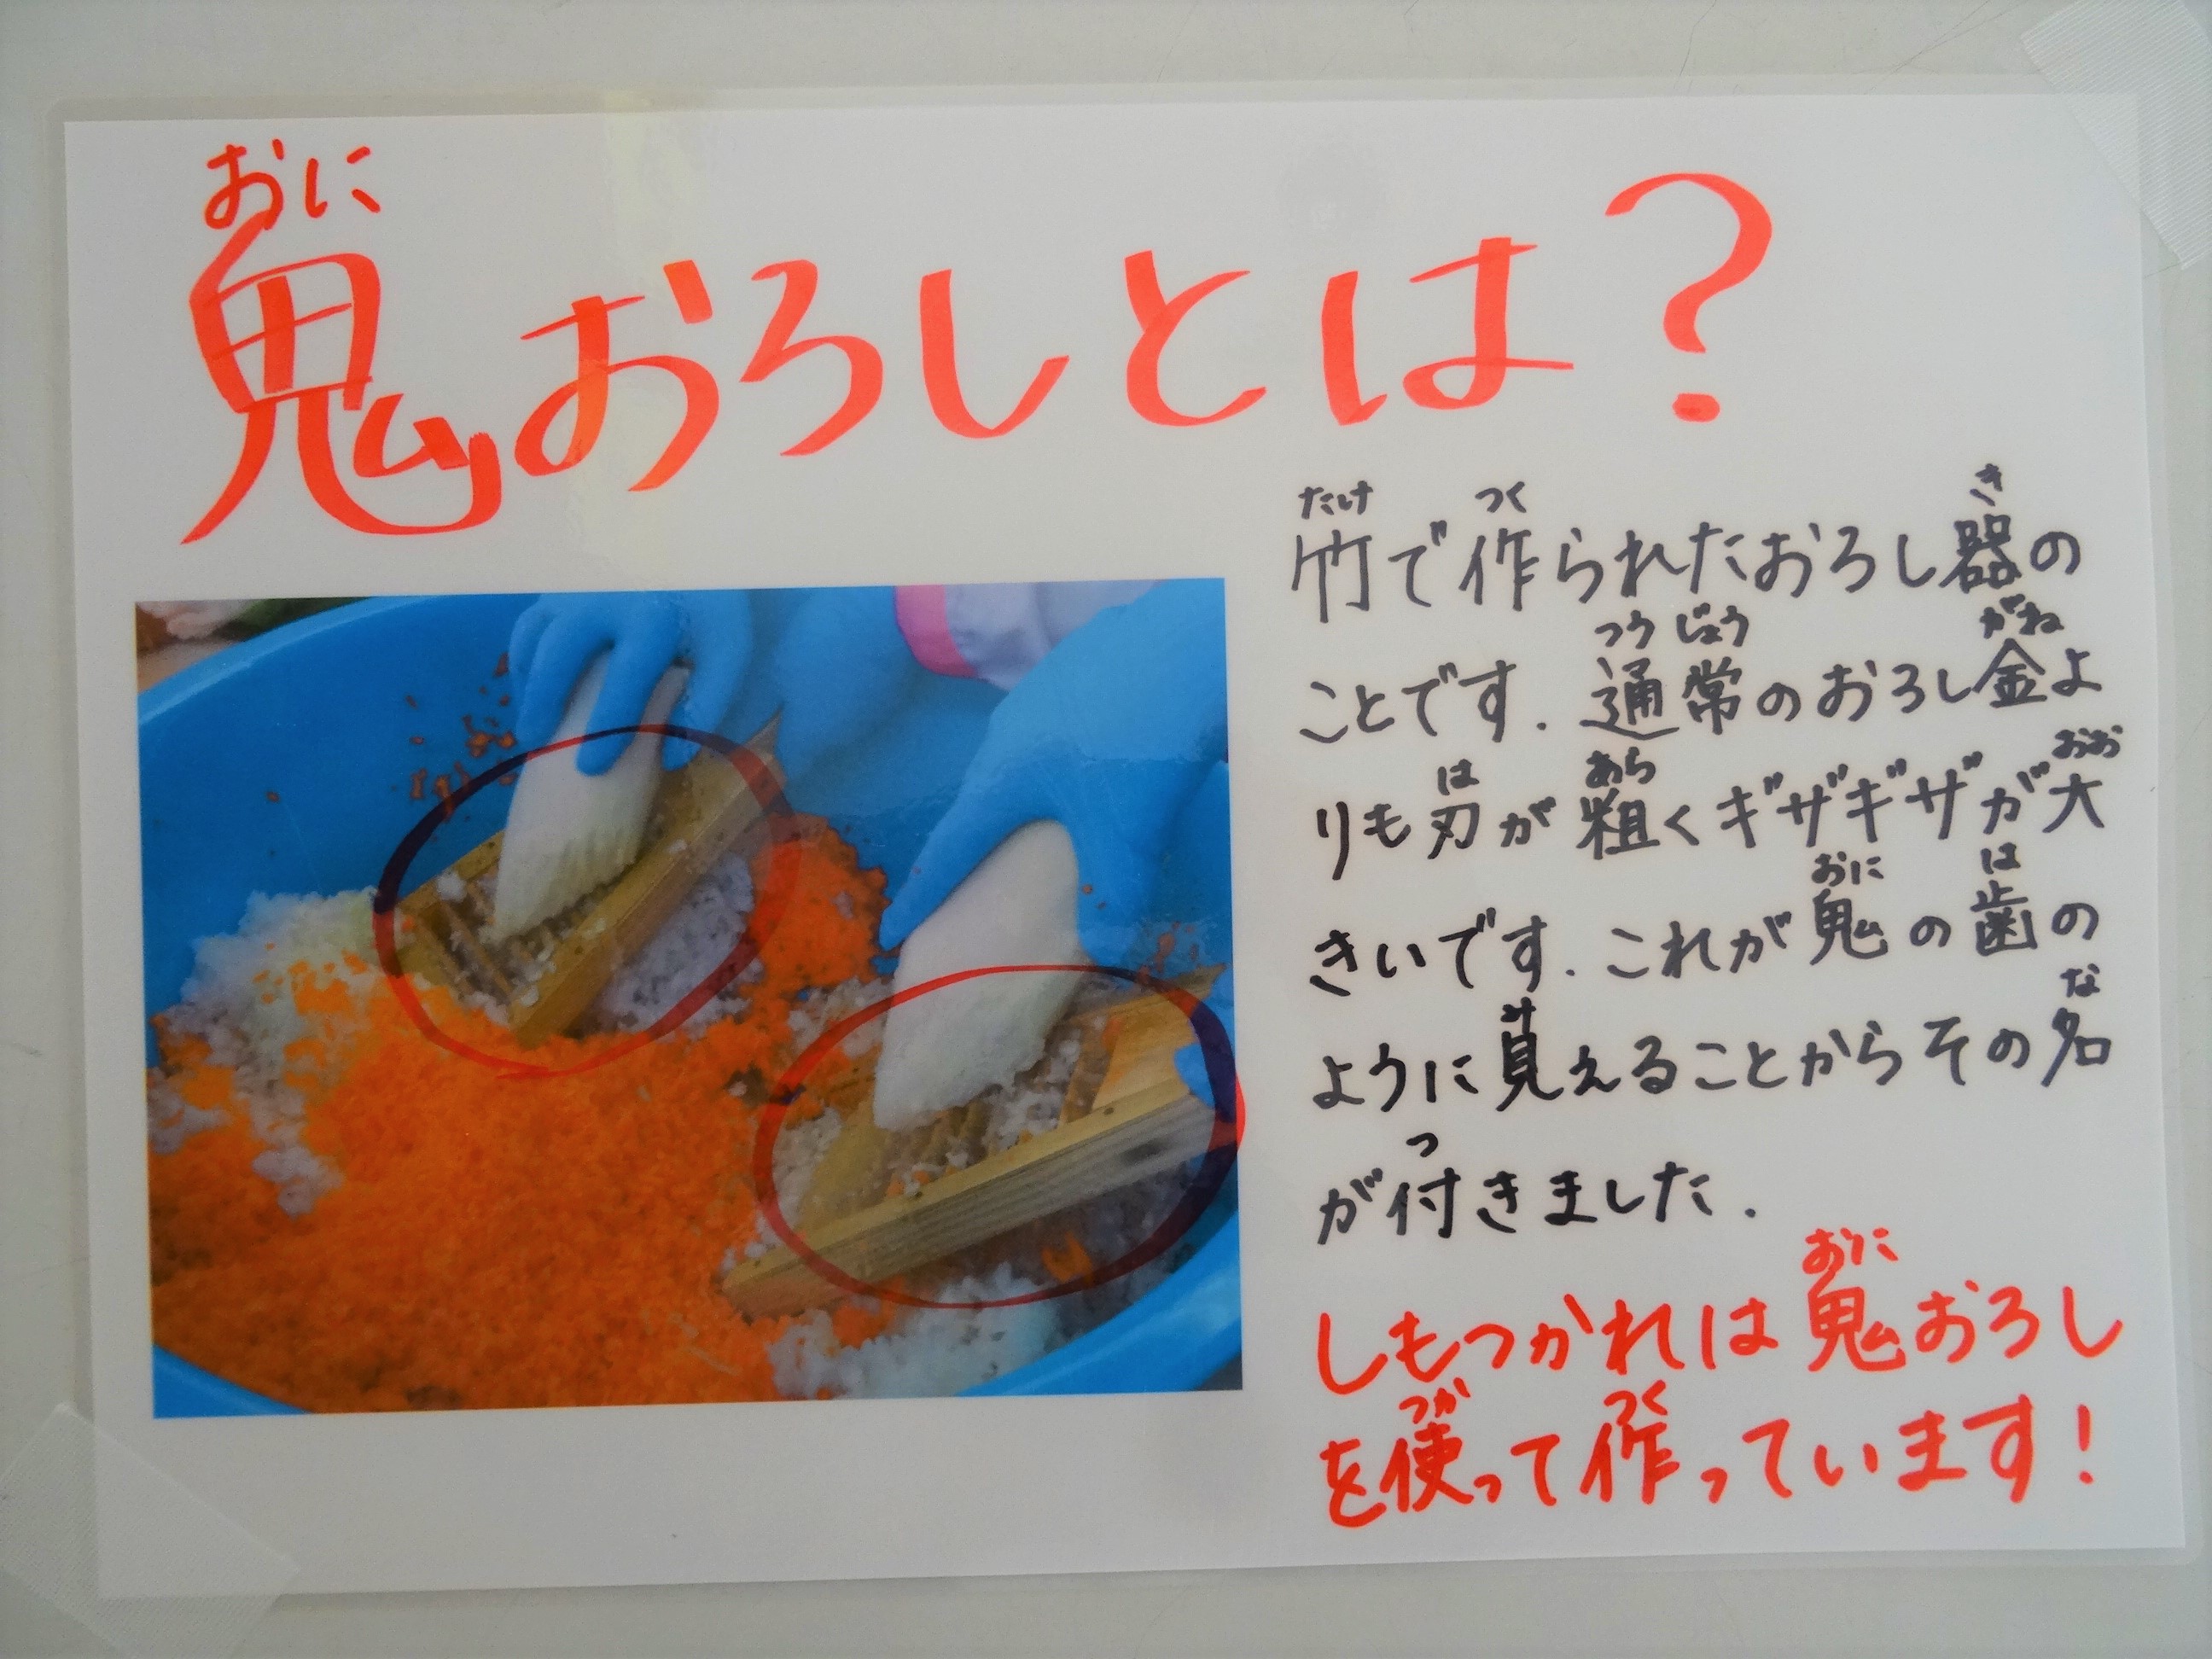 おに
鬼おろしとは?
たけ つく き
竹で作られたおろし器の
つうじょう がね
ことです.通常のおろし金よ
は あら おお
りも刃が粗くギザギザが大
おに は
きいです.これが鬼の歯の
み な
ように見えることからその名
つ
が付きました.
おに
しもつかれは鬼おろし
つか つく
を使って作っています!